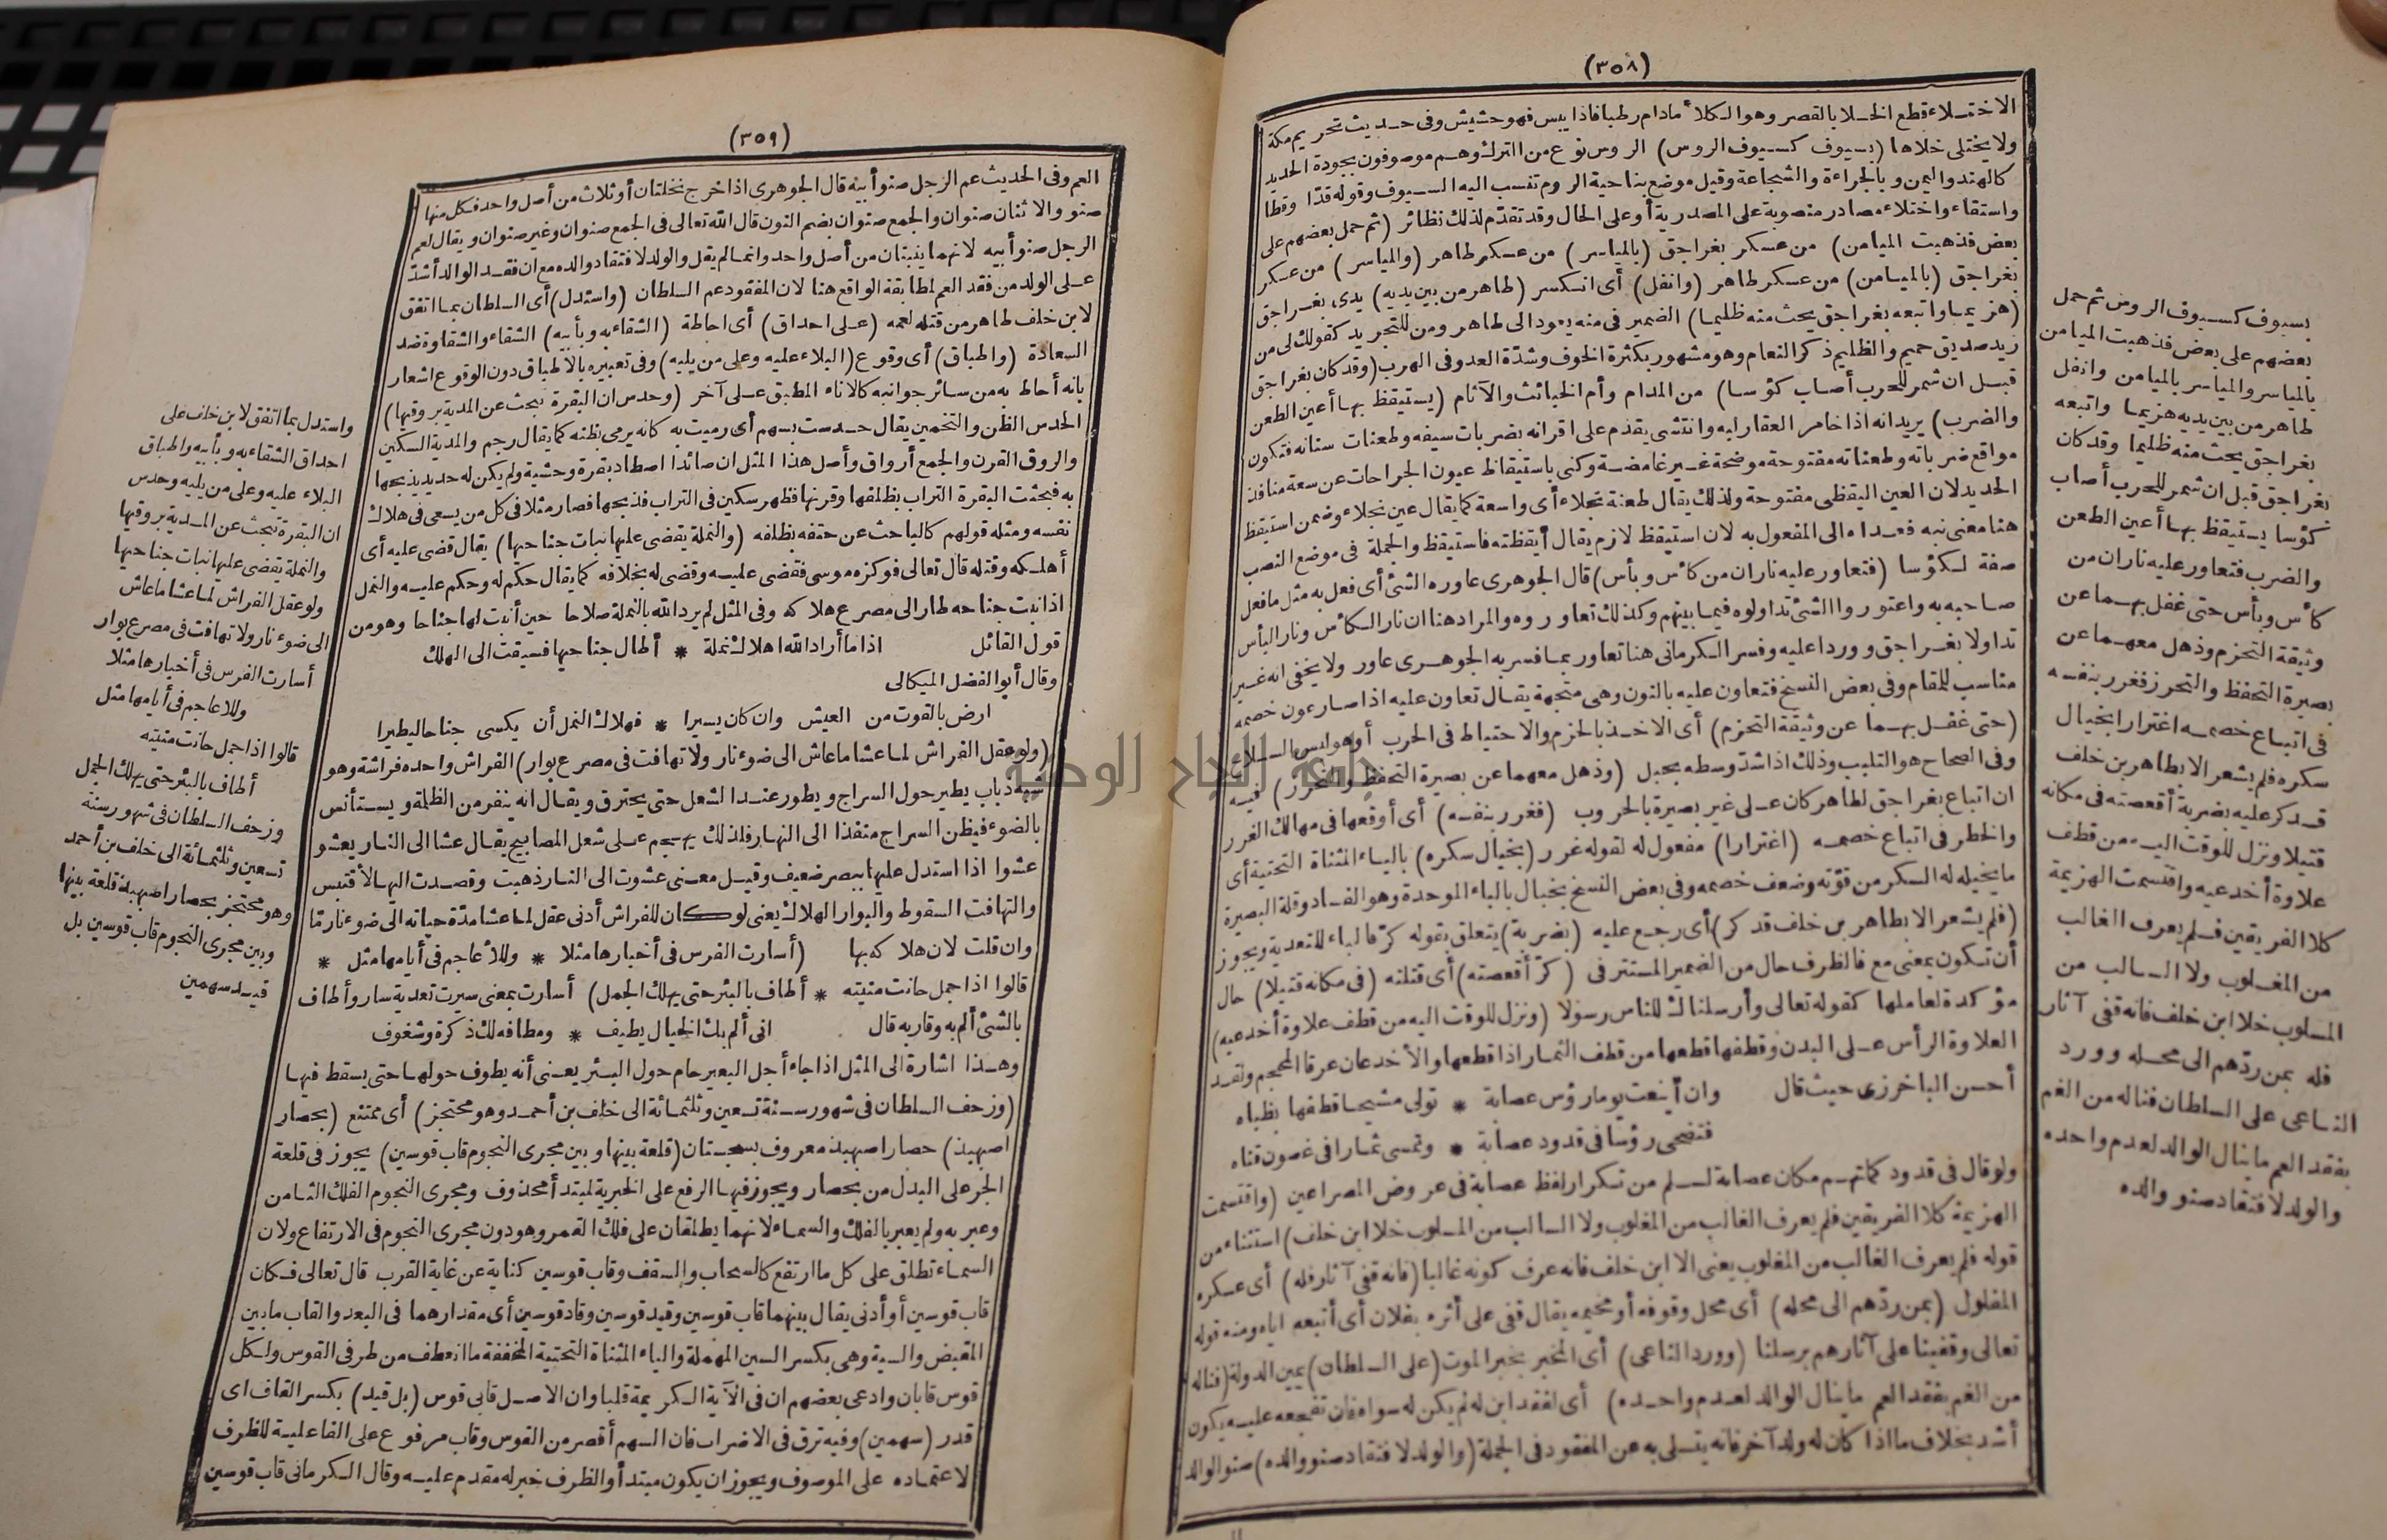 (٣٥٨)
الاختلاء قطع الخلا بالقصر وهو الكلأ مادام رطبا فاذا يبس فهو حشيش وفى حديث تحريم مكة
ولا يختلى خلاها (بسيوف كسيوف الروس) الروس نوع من الترك وهم موصوفون بجودة الحديد
كالهند واليمن وبالجراءة والشجاعة وقيل موضع بناحية الروم تنسب اليه السيوف وقوله قدّا وقطا
واستقاء واختلاء مصادر منصوبة على المصدرية أو على الحال وقد تقدّم لذلك نظائر (ثم حمل بعضهم على
بعض فذهبت الميامن) من عسكر بغراجق (بالمياسر) من عسكر طاهر (والمياسر) من عسكر
بغراجق (بالميامن) من عسكر طاهر (وانفل) أى انكسر (طاهر من بين يديه) يدى بغراجق
(هزيما واتبعه بغراجق يحث منه ظليما) الضمير فى منه يعود الى طاهر ومن للتجريد كقولك لى من
زيد صديق حميم والظليم ذكر النعام وهو مشهور بكثرة الخوف وشدّة العدو فى الهرب (وقد كان بغراجق
قبل ان شمر للحرب أصاب كؤسا) من المدام وأم الخبائث والآثام (يستيقظ بها أعين الطعن
والضرب) يريد انه اذا خامر العقار لبه وانتشى يقدم على اقرانه بضربات سيفه وطعنات سنانه فتكون
مواقع ضرباته وطعناته مفتوحة موضحة غير غامضة وكنى باستيقاظ عيون الجراحات عن سعة منافذ
الحديد لان العين اليقظى مفتوحة ولذلك يقال طعنة نجلاء أى واسعة كما يقال عين نجلاء وضمن استيقظ
هنا معنى نبه فعداه الى المفعول به لان استيقظ لازم يقال أيقظته فاستيقظ والجملة فى موضع النصب
صفة لكؤسا (فتعاور عليه ناران من كأس وبأس) قال الجوهرى عاوره الشئ أى فعل به مثل ما فعل
صاحبه به واعتوروا الشئ تداولوه فيما بينهم وكذلك تعاوروه والمراد هنا ان نار الكأس ونار البأس
تداولا بغراجق ووردا عليه وفسر الكرمانى هنا تعاور بما فسر به الجوهرى عاور ولا يخفى انه غير
مناسب للمقام وفى بعض النسخ فتعاون عليه بالنون وهى متجهة يقال تعاون عليه اذا صار عون خصمه
(حتى غفل بهما عن وثيقة التحزم) أى الاخذ بالحزم والاحتياط فى الحرب أو هو لبس السلاح
وفى الصحاح هو التلبب وذلك اذا شدّ وسطه بحبل (وذهل معهما عن بصيرة التحفظ والتحرز) فيه
ان اتباع بغراجق لطاهر كان على غير بصيرة بالحروب (فغرر بنفسه) أى أوقعها فى مهالك الغرر
والخطر فى اتباع خصمه (اغترارا) مفعول له لقوله غرر (بخيال سكره) بالياء المثناة التحتية أى
ما يخيله له السكر من قوّته وضعف خصمه وفى بعض النسخ بخبال بالباء الموحدة وهو الفساد وقلة البصيرة
(فلم يشعر الا بطاهر بن خلف قد كر) أى رجع عليه (بضربة) يتعلق بقوله كرّ فالباء للتعدية ويجوز
أن تكون بمعنى مع فالظرف حال من الضمير المستتر فى (كرّ أقعصته) أى قتلته (فى مكانه قتيلا) حال
مؤكدة لعاملها كقوله تعالى وأرسلناك للناس رسولا (ونزل للوقت اليه من قطف علاوة أخدعيه)
العلاوة الرأس على البدن وقطفها قطعها من قطف الثمار اذا قطعها والأخدعان عرقا المحجم ولقد
أحسن الباخرزى حيث قال وان أينعت يوما رؤس عصابة * تولى مشيحا قطفها بظباه
فتضحى رؤسا فى قدود عصابة * وتمسى ثمارا فى غصون قناه
ولو قال فى قدود كماتهم مكان عصابة لسلم من تكرار لفظ عصابة فى عروض المصراعين (واقتسمت
الهزيمة كلا الفريقين فلم يعرف الغالب من المغلوب ولا السالب من المسلوب خلا ابن خلف) استثناء من
قوله فلم يعرف الغالب من المغلوب يعنى الا ابن خلف فانه عرف كونه غالبا (فانه قفى آثار فله) أى عسكره
المفلول (بمن ردّهم الى محله) أى محل وقوفه أو مخيمه يقال قفى على أثره بفلان أى أتبعه اياه ومنه قوله
تعالى وقفينا على آثارهم برسلنا (وورد الناعى) أى المخبر بخبر الموت (على السلطان) يمين الدولة (فناله
من الغم بفقد العم ما ينال الوالد لعدم واحده) أى لفقد ابن له لم يكن له سواه فان تفجعه عليه يكون
أشد بخلاف ما اذا كان له ولد آخر فانه يتسلى به عن المفقود فى الجملة (والولد لافتقاد صنو والده) صنو الوالد
بسيوف كسيوف الروس ثم حمل
بعضهم على بعض فذهبت الميامن
بالمياسر والمياسر بالميامن وانفل
طاهر من بين يديه هزيما واتبعه
بغراجق يحث منه ظليما وقد كان
بغراجق قبل ان شمر للحرب أصاب
كؤسا يستيقظ بها أعين الطعن
والضرب فتعاور عليه ناران من
كأس وبأس حتى غفل بهما عن
وثيقة التحزم وذهل معهما عن
بصيرة التحفظ والتحرز فغرر بنفسه
فى اتباع خصمه اغترارا بخيال
سكره فلم يشعر الا بطاهر بن خلف
قد كر عليه بضربة أقعصته فى مكانه
قتيلا ونزل للوقت اليه من قطف
علاوة أخدعيه واقتسمت الهزيمة
كلا الفريقين فلم يعرف الغالب
من المغلوب ولا السالب من
المسلوب خلا ابن خلف فانه قفى آثار
فله بمن ردّهم الى محله وورد
الناعى على السلطان فناله من الغم
بفقد العم ما ينال الوالد لعدم واحده
والولد لافتقاد صنو والده
(٣٥٩)
العم وفى الحديث عم الرجل صنو أبيه قال الجوهرى اذا خرج نخلتان أو ثلاث من أصل واحد فكل منها
صنو والاثنان صنوان والجمع صنوان بضم النون قال الله تعالى فى الجمع صنوان وغير صنوان ويقال لعم
الرجل صنو أبيه لانهما ينبتان من أصل واحد وانما لم يقل والولد لافتقاد والده مع ان فقد الوالد أشدّ
على الولد من فقد العم لمطابقة الواقع هنا لان المفقود عم السلطان (واستدل) أى السلطان بما اتفق
لابن خلف طاهر من قتله لعمه (على احداق) أى احاطة (الشقاء به وبأبيه) الشقاء والشقاوة ضد
السعادة (واطباق) أى وقوع (البلاء عليه وعلى من يليه) وفى تعبيره بالاطباق دون الوقوع اشعار
بانه أحاط به من سائر جوانبه كالاناء المطبق على آخر (وحدس ان البقرة تبحث عن المدية بروقيها)
الحدس الظن والتخمين يقال حدست بسهم أى رميت به كانه يرمى بظنه كما يقال رجم والمدية السكين
والروق القرن والجمع أرواق وأصل هذا المثل ان صائدا اصطاد بقرة وحشية ولم يكن له حديد يذبحها
به فبحثت البقرة التراب بظلفها وقرنها فظهر سكين فى التراب فذبحها فصار مثلا فى كل من يسعى فى هلاك
نفسه ومثله قولهم كالباحث عن حتفه بظلفه (والنملة يقضى عليها نبات جناحيها) يقال قضى عليه أى
أهلكه وقتله قال تعالى فوكزه موسى فقضى عليه وقضى له بخلافه كما يقال حكم له وحكم عليه والنمل
اذا نبت جناحه طار الى مصرع هلاكه وفى المثل لم يرد الله بالنملة صلاحا حين أنبت لها جناحا وهو من
قول القائل اذا ما أراد الله اهلاك نملة * أطال جناحيها فسيقت الى الهلك
وقال أبو الفضل الميكالى
ارض بالقوت من العيش وان كان يسيرا * فهلاك النمل أن يكسى جناحا ليطيرا
(ولو عقل الفراش لما عشا ما عاش الى ضوء نار ولا تهافت فى مصرع بوار) الفراش واحده فراشة وهو
شبه ذباب يطير حول السراج ويطور عندا لشعل حتى يحترق ويقال انه ينفر من الظلمة ويستأنس
بالضوء فيظن السراج منفذا الى النهار فلذلك يهجم على شعل المصابيح يقال عشا الى النار يعشو
عشوا اذا استدل عليها ببصر ضعيف وقيل معنى عشوت الى النار ذهبت وقصدت اليها لأقتبس
والتهافت السقوط والبوار الهلاك يعنى لوكان للفراش أدنى عقل لما عشا مدّة حياته الى ضوء نار مّا
وان قلت لان هلاكه بها (أسارت الفرس فى أخبارها مثلا * وللأعاجم فى أيامها مثل *
قالوا اذا جمل حانت منيته * أطاف بالبئر حتى يهلك الجمل) أسارت بمعنى سيرت تعدية سار وأطاف
بالشئ ألم به وقاربه قال انى ألم بك الخيال يطيف * ومطافه لك ذكرة وشغوف
وهذا اشارة الى المثل اذا جاء أجل البعير حام حول البئر يعنى أنه يطوف حولها حتى يسقط فيها
(وزحف السلطان فى شهور سنة تسعين وثلثمائة الى خلف بن أحمد وهو محتجز) أى ممتنع (بحصار
اصبهبذ) حصار اصبهبذ معروف بسجستان (قلعة بينها وبين مجرى النجوم قاب قوسين) يجوز فى قلعة
الجر على البدل من بحصار ويجوز فيها الرفع على الخبرية لمبتدأ محذوف ومجرى النجوم الفلك الثامن
وعبر به ولم يعبر بالفلك والسماء لانهما يطلقان على فلك القمر وهو دون مجرى النجوم فى الارتفاع ولان
السماء تطلق على كل ما ارتفع كالسحاب والسقف وقاب قوسين كناية عن غاية القرب قال تعالى فكان
قاب قوسين أو أدنى يقال بينهما قاب قوسين وقيد قوسين وقاد قوسين أى مقدارهما فى البعد والقاب ما بين
المقبض والسية وهى بكسر السين المهملة والياء المثناة التحتية المخففة ما انعطف من طرفى القوس ولكل
قوس قابان وادعى بعضهم ان فى الآية الكريمة قلبا وان الاصل قابى قوس (بل قيد) بكسر القاف اى
قدر (سهمين) وفيه ترق فى الاضراب فان السهم أقصر من القوس وقاب مرفوع على الفاعلية للظرف
لاعتماده على الموصوف ويجوز ان يكون مبتدأ والظرف خبر له مقدم عليه وقال الكرمانى قاب قوسين
واستدل بما اتفق لابن خلف على
احداق الشقاء به وبأبيه واطباق
البلاء عليه وعلى من يليه وحدس
ان البقرة تبحث عن المدية بروقيها
والنملة يقضى عليها نبات جناحيها
ولو عقل الفراش لما عشا ما عاش
الى ضوء نار ولا تهافت فى مصرع بوار
أسارت الفرس فى أخبارها مثلا
وللاعاجم فى أيامها مثل
قالوا اذا جمل حانت منيته
أطاف بالبئر حتى يهلك الجمل
وزحف السلطان فى شهور سنة
تسعين وثلثمائة الى خلف بن أحمد
وهو محتجز بحصار اصبهبذ قلعة بينها
وبين مجرى النجوم قاب قوسين بل
قيد سهمين
جامعة النجاح الوطنية